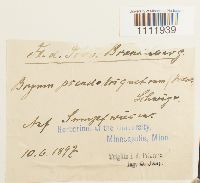 1111939
Fl. d. Prov. Brandenburg
Bryum pseudotriquetrum,
Schwägr.
Auf Sumpfwiesen
Herbarium of the University,
Minneapolis, Minn.
10.6.1897